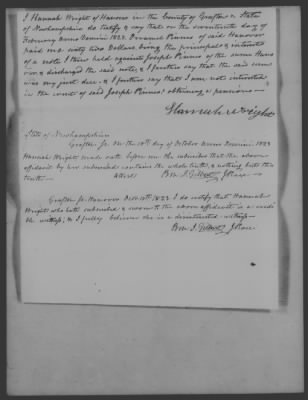 I Hannah Wright of Hanover in the County of Grafton & State
of Newhampshire do testify & say that on the seventeenth day of
February Anno Domini 1823. Pinneo of said Hanover
paid me sixty two Dollars being the principal & interest
of a note I then held against Joseph Pinneo of the same Hano
ver, & discharged the said note, & I further say that the said sum
was my just due - & I further say that I am not interested
in the event of said Joseph Pinneos' obtaining a pension -
Hannah Wright
State of Newhampshire
Grafton Ss. On the 10th day of October Anno Domini. 1823
Hannah Wright made oath before me the subscriber that the above
affidavit by her subscribed contains the whole truth, & nothing but the
truth - attest Ben J. Gilbert J Peace
Grafton Ss. Hanover Octr 10th 1823 I do certify that Hannah
Wright who hath subscribed & sworn to the above affidavit is a credi
ble witness, & I fully believe she is a disinterested witness -
Ben J. Gilbert J Peace